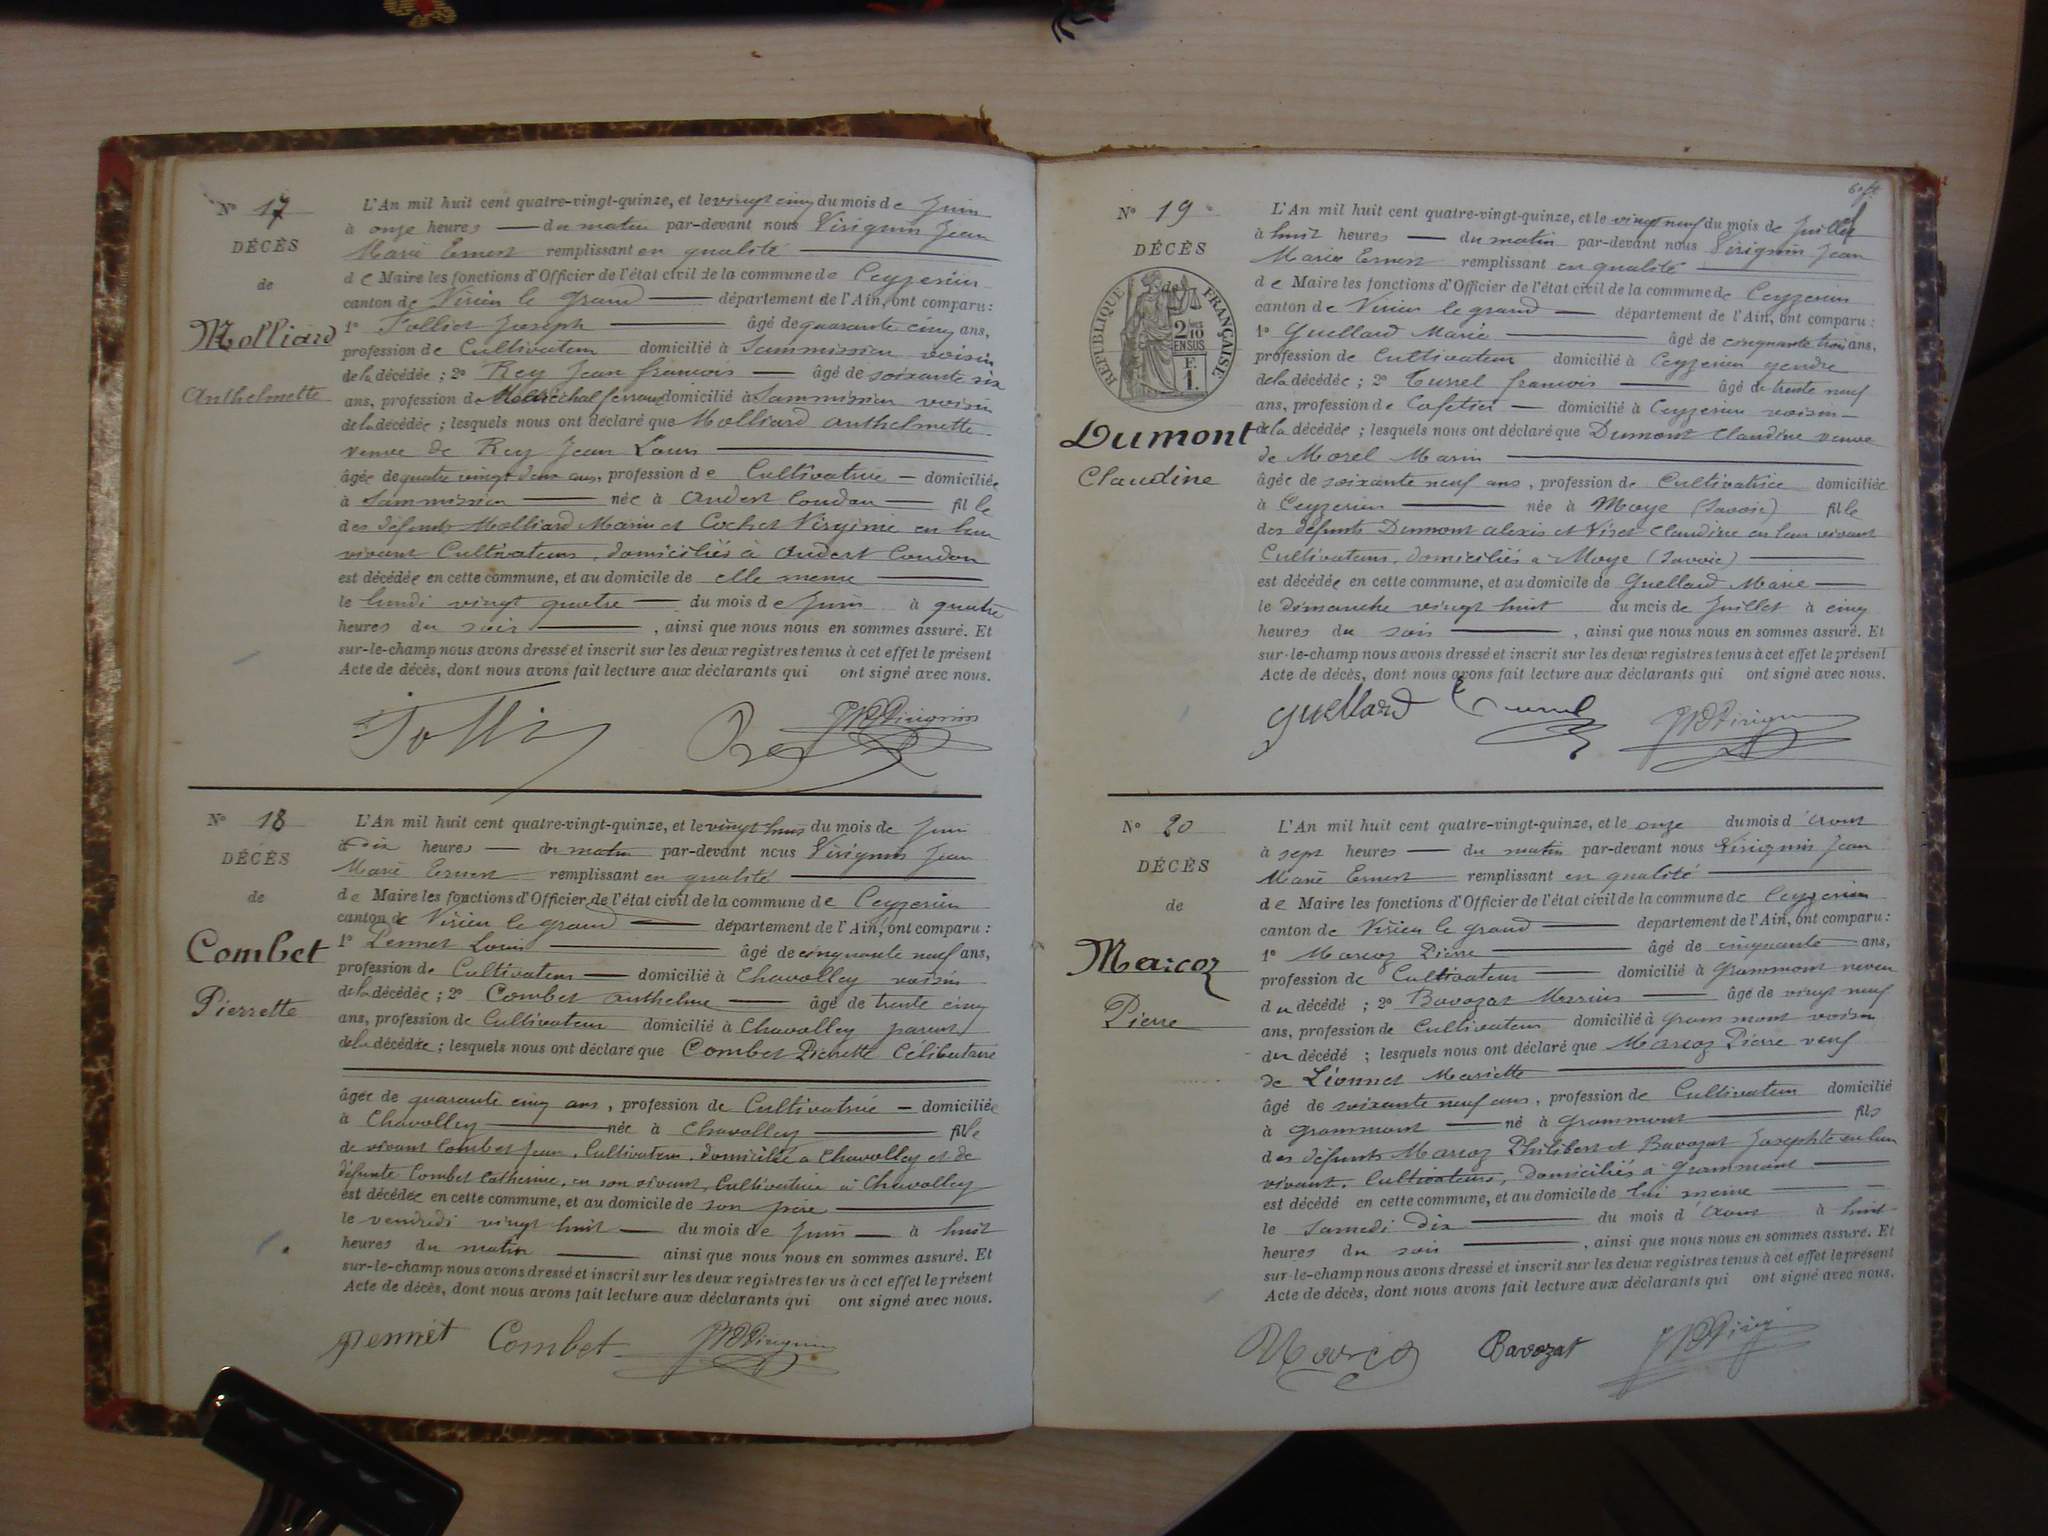 N° 17
DÉCÈS
de
Molliard
Anthelmette
L'An mil huit cent quatre-vingt-quinze, et le vingt cinq du mois de Juin
à onze heures — du matin par-devant nous Virignin Jean
Marie Ernest remplissant en qualité
de Maire les fonctions d'Officier de l'état civil de la commune de Ceyzerieu
canton de Virieu le grand — département de l'Ain, ont comparu :
1° Folliet Joseph — âgé de quarante cinq ans,
profession de Cultivateur domicilié à Sammissieu voisin
de la décédée ; 2° Rey Jean françois — âgé de soixante six
ans, profession de Maréchal ferrant domicilié à Sammissieu voisin
de la décédée ; lesquels nous ont déclaré que Molliard Anthelmette
veuve de Rey Jean Louis
âgée de quatre vingt deux ans, profession de Cultivatrice — domiciliée
à Sammissieu — née à Andert Condon — fille
des défunts Molliard Marin et Cochet Virginie en leur
vivant Cultivateurs, domiciliés à Andert Condon
est décédée en cette commune, et au domicile de elle meme
le lundi vingt quatre — du mois de Juin à quatre
heures du soir — , ainsi que nous nous en sommes assuré. Et
sur-le-champ nous avons dressé et inscrit sur les deux registres tenus à cet effet le présent
Acte de décès, dont nous avons fait lecture aux déclarants qui ont signé avec nous.
N° 18
DÉCÈS
de
Combet
Pierrette
L'An mil huit cent quatre-vingt-quinze, et le vingt huit du mois de Juin
à dix heures — du matin par-devant nous Virignin Jean
Marie Ernest remplissant en qualité
de Maire les fonctions d'Officier de l'état civil de la commune de Ceyzerieu
canton de Virieu le grand — département de l'Ain, ont comparu :
1° Pennet Louis — âgé de cinquante neuf ans,
profession de Cultivateur — domicilié à Chavolley voisin
de la décédée ; 2° Combet Anthelme — âgé de trente cinq
ans, profession de Cultivateur domicilié à Chavolley parent
de la décédée ; lesquels nous ont déclaré que Combet Pierrette Célibataire
âgée de quarante cinq ans, profession de Cultivatrice — domiciliée
à Chavolley — née à Chavolley — fille
de vivant Combet Jean, Cultivateur, domicilié à Chavolley et de
défunte Combet Catherine, en son vivant, Cultivatrice à Chavolley
est décédée en cette commune, et au domicile de son père
le vendredi vingt huit — du mois de Juin — à huit
heures du matin — ainsi que nous nous en sommes assuré. Et
sur-le-champ nous avons dressé et inscrit sur les deux registres tenus à cet effet le présent
Acte de décès, dont nous avons fait lecture aux déclarants qui ont signé avec nous.
Pennet Combet
N° 19
DÉCÈS
RÉPUBLIQUE FRANÇAISE
2 10 EN SUS
F. 1.
Dumont
Claudine
L'An mil huit cent quatre-vingt-quinze, et le vingt neuf du mois de Juillet
à huit heures — du matin par-devant nous Virignin Jean
Marie Ernest remplissant en qualité
de Maire les fonctions d'Officier de l'état civil de la commune de Ceyzerieu
canton de Virieu le grand — département de l'Ain, ont comparu :
1° Guellard Marie — âgé de cinquante trois ans,
profession de Cultivateur domicilié à Ceyzerieu gendre
de la décédée ; 2° Tussel françois — âgé de trente neuf
ans, profession de Cafetier — domicilié à Ceyzerieu voisin
de la décédée ; lesquels nous ont déclaré que Dumont Claudine veuve
de Morel Marin
âgée de soixante neuf ans, profession de Cultivatrice domiciliée
à Ceyzerieu — née à Moye (Savoie) fille
des défunts Dumont Alexis et Viset Claudine en leur vivant
Cultivateurs, domiciliés à Moye (Savoie)
est décédée en cette commune, et au domicile de Guellard Marie
le dimanche vingt huit du mois de Juillet à cinq
heures du soir — , ainsi que nous nous en sommes assuré. Et
sur-le-champ nous avons dressé et inscrit sur les deux registres tenus à cet effet le présent
Acte de décès, dont nous avons fait lecture aux déclarants qui ont signé avec nous.
Guellard
N° 20
DÉCÈS
de
Marcoz
Pierre
L'An mil huit cent quatre-vingt-quinze, et le onze du mois d'Aout
à sept heures — du matin par-devant nous Virignin Jean
Marie Ernest remplissant en qualité
de Maire les fonctions d'Officier de l'état civil de la commune de Ceyzerieu
canton de Virieu le grand — département de l'Ain, ont comparu :
1° Marcoz Pierre — âgé de cinquante ans,
profession de Cultivateur — domicilié à Grammont neveu
du décédé ; 2° Bavozat Marius — âgé de vingt neuf
ans, profession de Cultivateur domicilié à Grammont voisin
du décédé ; lesquels nous ont déclaré que Marcoz Pierre veuf
de Lionnet Mariette
âgé de soixante neuf ans, profession de Cultivateur domicilié
à Grammont — né à Grammont — fils
des défunts Marcoz Philibert et Bavozat Josephte en leur
vivant, Cultivateurs, domiciliés à Grammont
est décédé en cette commune, et au domicile de lui meme
le Samedi dix — du mois d'Aout à huit
heures du soir — , ainsi que nous nous en sommes assuré. Et
sur-le-champ nous avons dressé et inscrit sur les deux registres tenus à cet effet le présent
Acte de décès, dont nous avons fait lecture aux déclarants qui ont signé avec nous.
Marcoz Bavozat